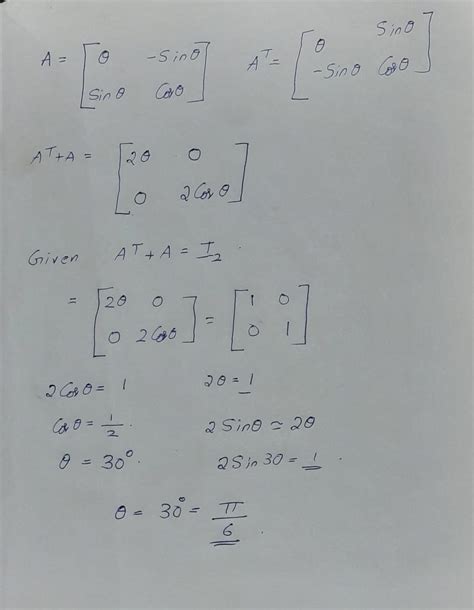 A = [ θ -Sinθ ; Sinθ Cosθ ] Aᵀ = [ θ Sinθ ; -Sinθ Cosθ ]
Aᵀ+A = [ 2θ 0 ; 0 2Cosθ ]
Given Aᵀ + A = I₂
= [ 2θ 0 ; 0 2Cosθ ] = [ 1 0 ; 0 1 ]
2Cosθ = 1 2θ = 1
Cosθ = 1/2 2Sinθ ≃ 2θ
θ = 30°. 2Sin30 = 1
θ = 30° = π/6.